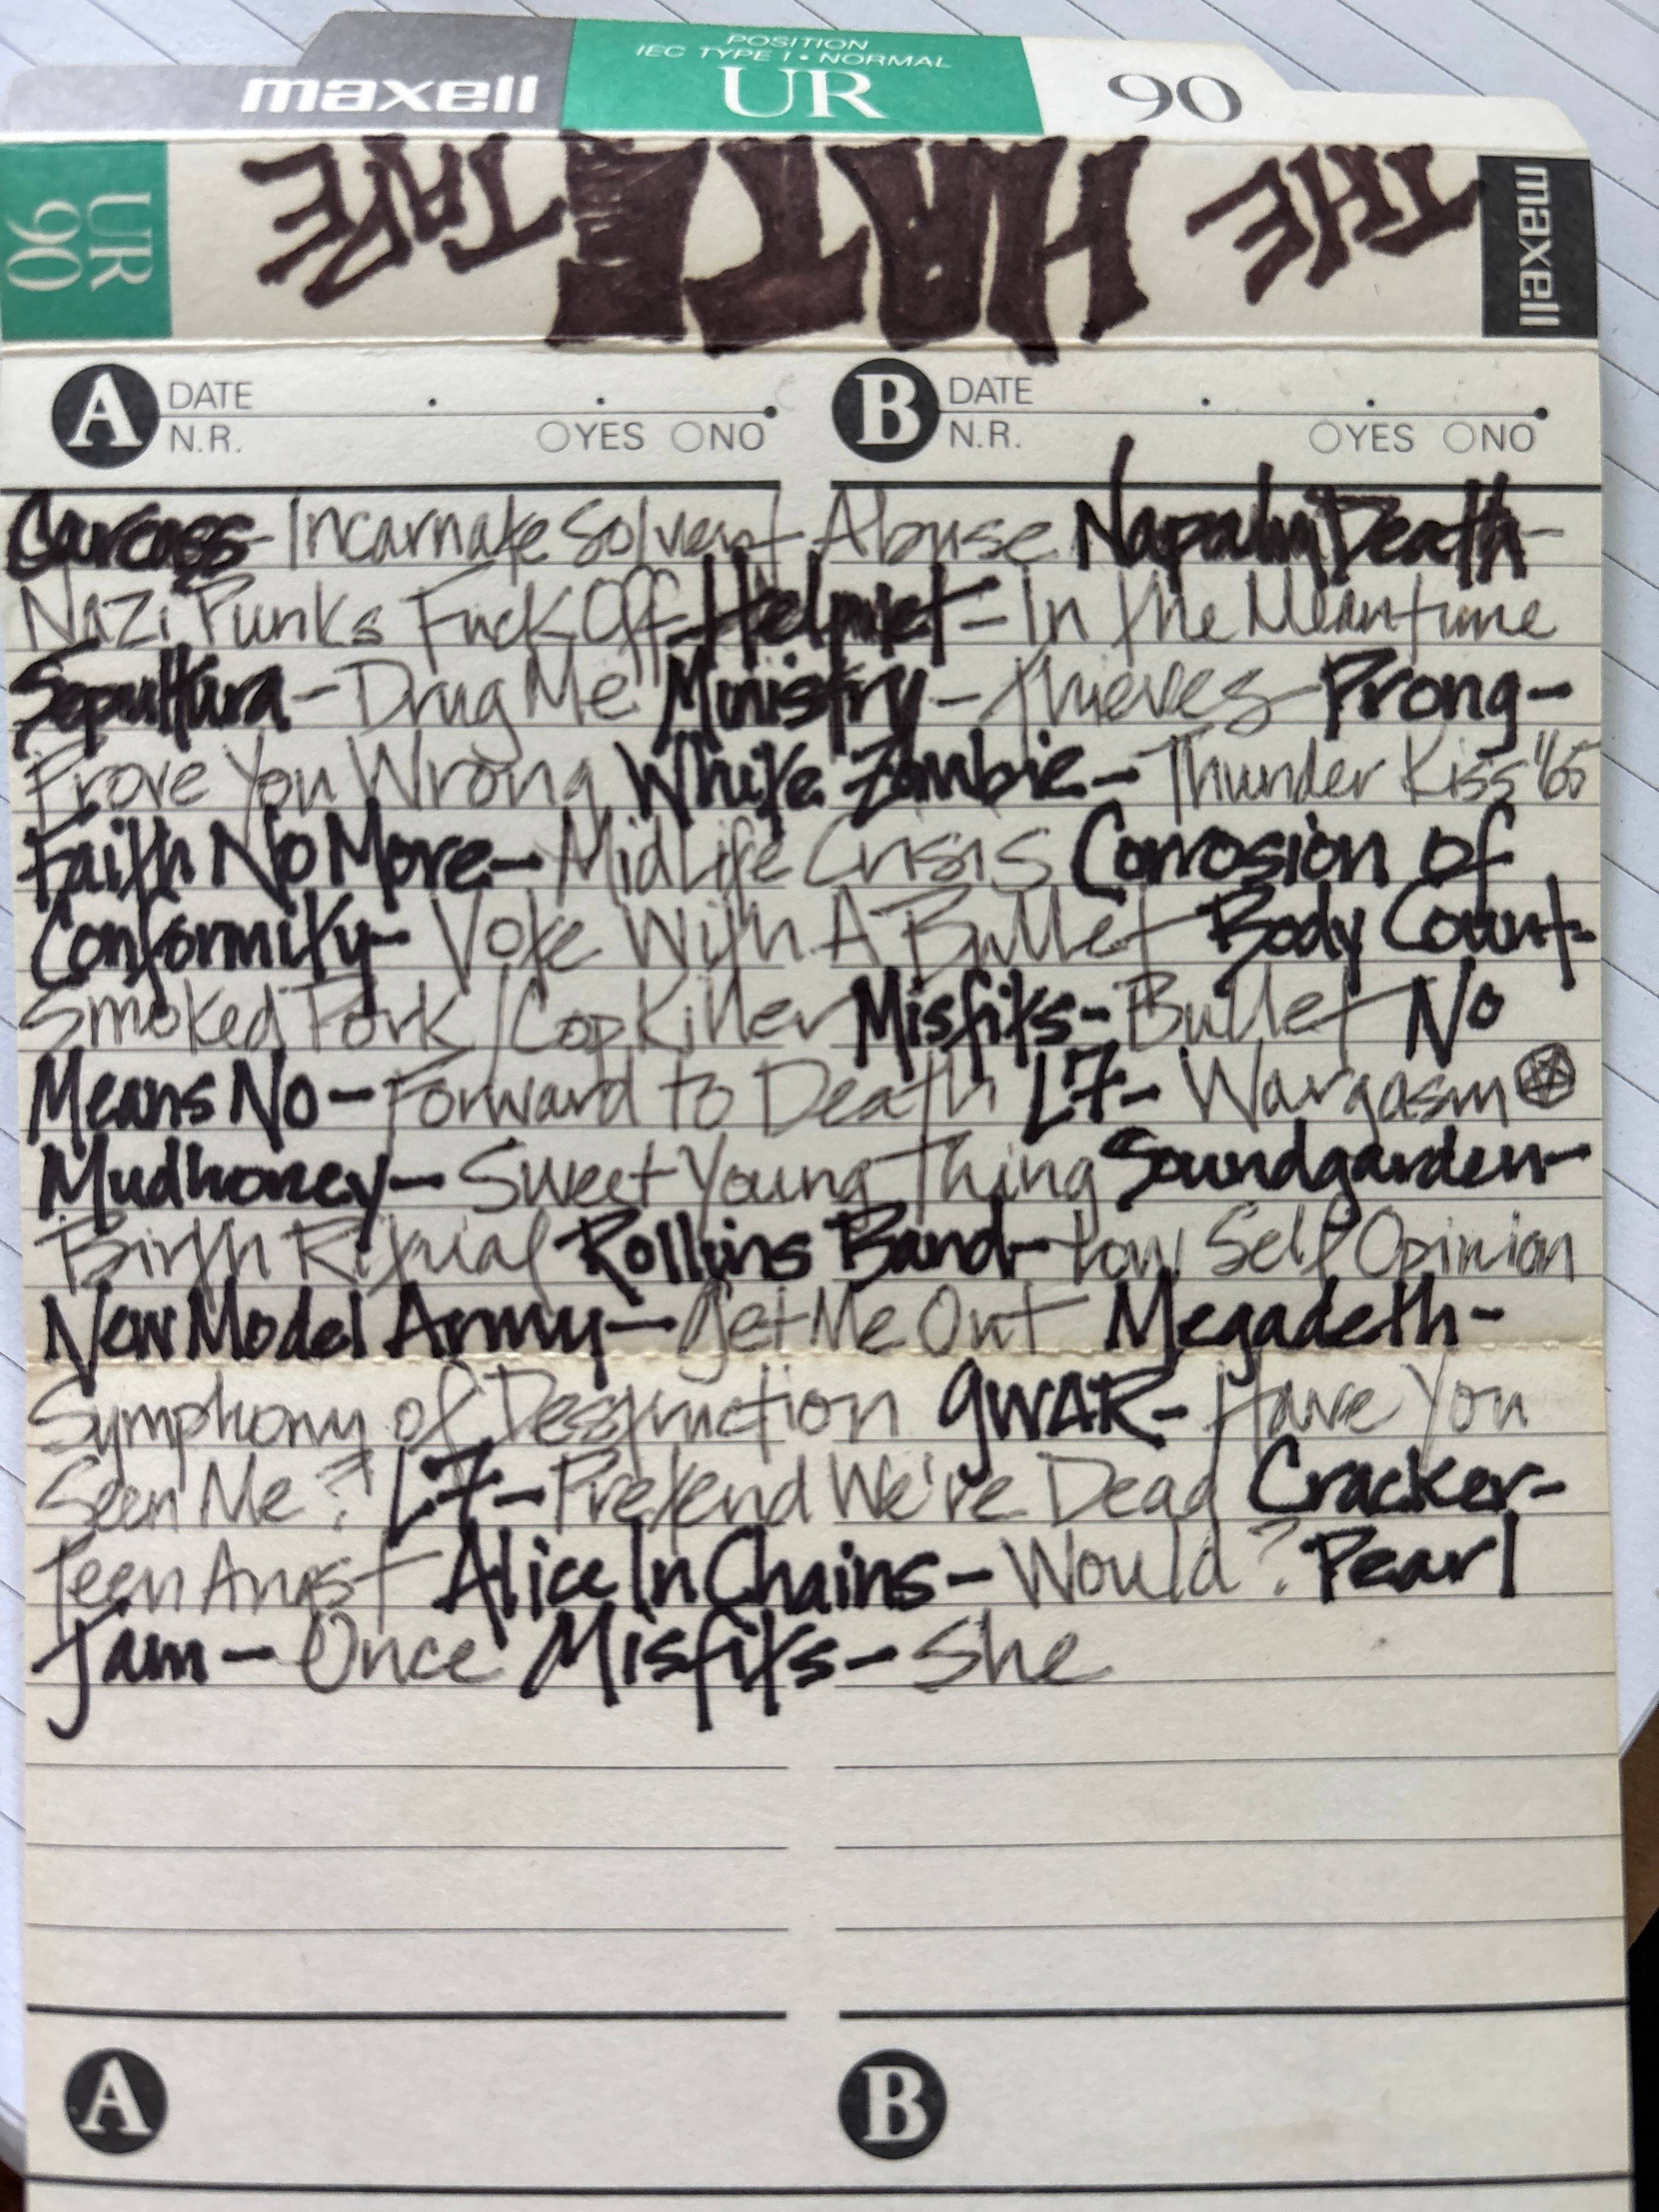 POSITION
IEC TYPE I • NORMAL
maxell UR 90
UR 90 THE HATE TAPE maxell
A DATE B DATE
N.R. YES NO N.R. YES NO
Carcass - Incarnate Solvent Abuse Napalm Death -
Nazi Punks Fuck Off Helmet - In the Meantime
Sepultura - Drug Me Ministry - Thieves Prong -
Prove You Wrong White Zombie - Thunder Kiss '65
Faith No More - MidLife Crisis Corrosion of
Conformity - Vote With A Bullet Body Count -
Smoked Pork / Cop Killer Misfits - Bullet No
Means No - Forward to Death L7 - Wargasm
Mudhoney - Sweet Young Thing Soundgarden -
Birth Ritual Rollins Band - Low Self Opinion
New Model Army - Get Me Out Megadeth -
Symphony of Destruction GWAR - Have You
Seen Me? L7 - Pretend We're Dead Cracker -
Teen Angst Alice In Chains - Would? Pearl
Jam - Once Misfits - She
A B